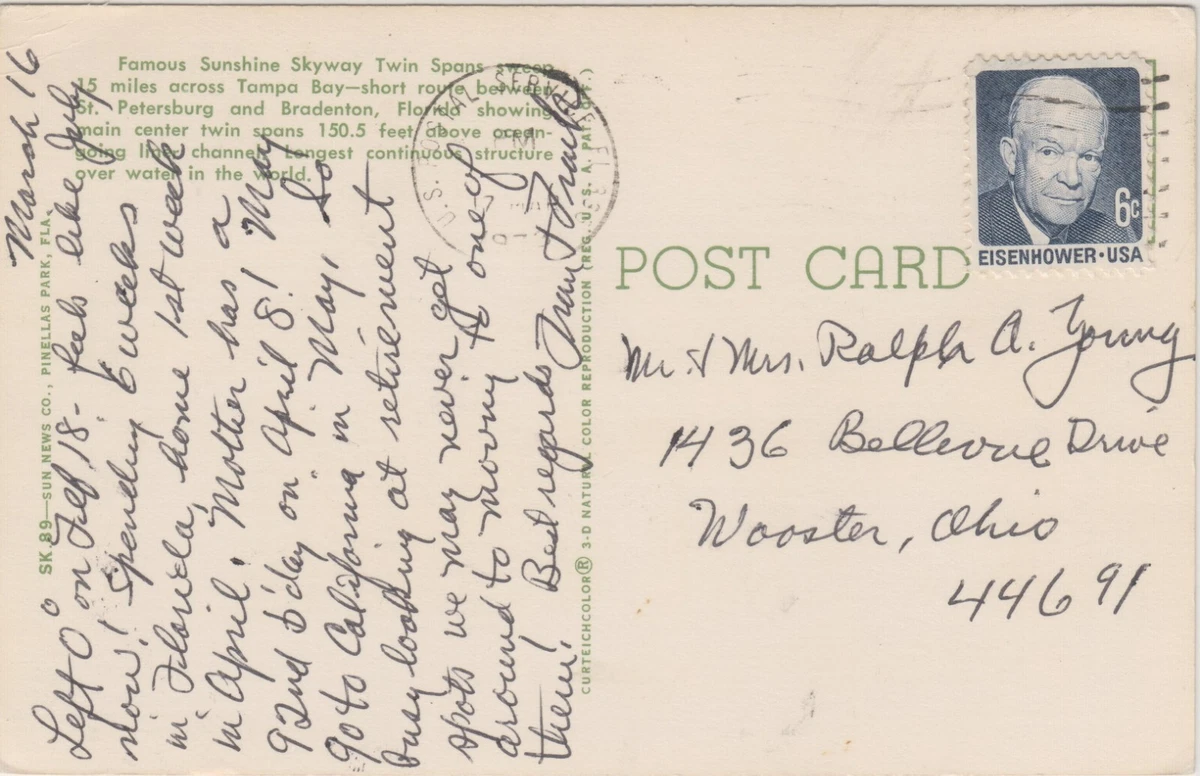 Famous Sunshine Skyway Twin Spans sweep
15 miles across Tampa Bay—short route between
St. Petersburg and Bradenton, Florida showing
main center twin spans 150.5 feet above ocean-
going liner channel. Longest continuous structure
over water in the world.
SK 89—SUN NEWS CO., PINELLAS PARK, FLA.
March 16
Left 0° on Feb 18 - feels like July
now! Spending 6 weeks
in Florida, home 1st week
in April. Mother has a
92nd b'day on April 8! May
go to California in May, so
busy looking at retirement
spots we may never get
around to moving to one of
them! Best regards Fran & Frank
CURTEICHCOLOR® 3-D NATURAL COLOR REPRODUCTION (REG. U.S. A. PAT. OFF.)
U.S. POSTAL SERVICE
PM
POST CARD
6c
EISENHOWER·USA
Mr. & Mrs. Ralph A. Young
1436 Bellevue Drive
Wooster, Ohio
44691